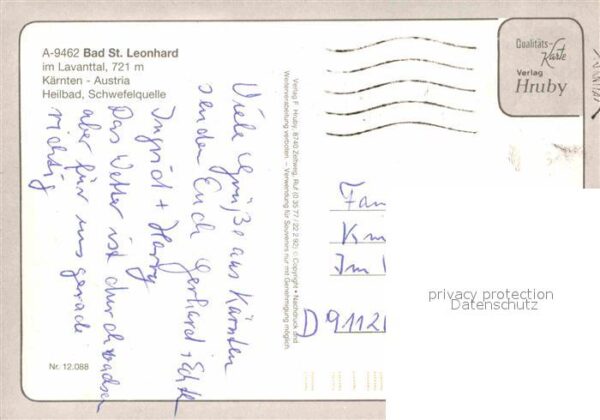 A-9462 Bad St. Leonhard
im Lavanttal, 721 m
Kärnten - Austria
Heilbad, Schwefelquelle
Viele Grüße aus Kärnten
senden Euch Gerhard,
Ingrid + Harry
Das Wetter ist durchwachsen
aber für uns gerade
richtig
Nr. 12.088
Verlag F. Hruby, 8740 Zeltweg, Ruf (0 35 77 / 22 2 92) © Copyright • Nachdruck und
Weiterverarbeitung verboten – Verwendung für Souvenirs nur mit Genehmigung möglich
Qualitäts-
Karte
Verlag
Hruby
Fam
Im
D 9112
privacy protection
Datenschutz